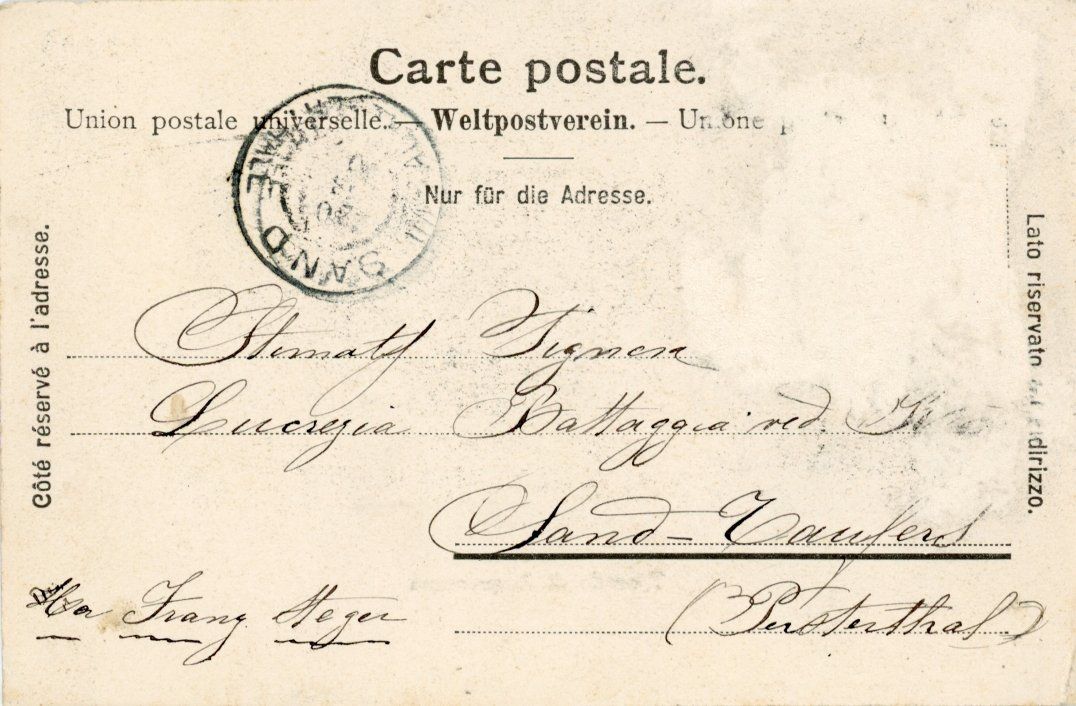 Carte postale.
Union postale universelle. — Weltpostverein. — Unione
Nur für die Adresse.
Côté réservé à l'adresse.
Lato riservato
dirizzo.
SAND
Lucrezia Battaggia ved.
Sand - Taufers
(Pusterthal)
Franz Steger